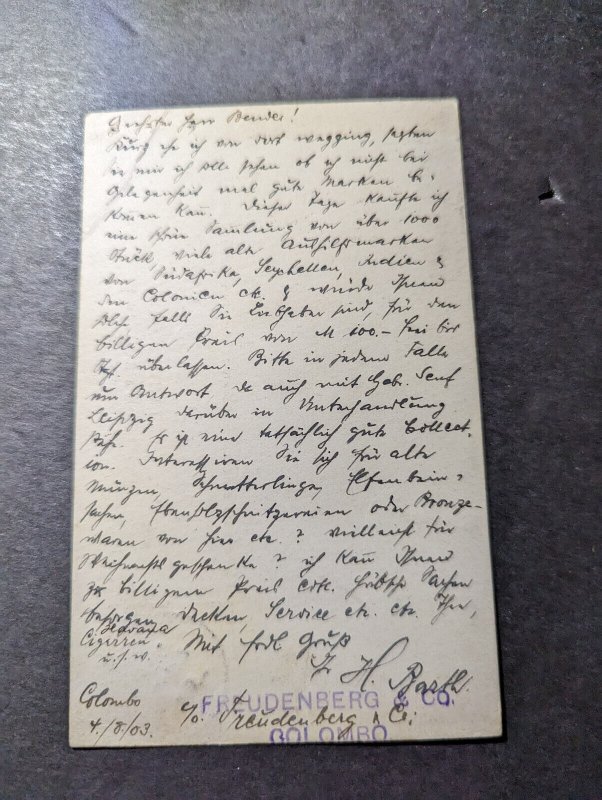 Geehrter Herr Bender!
Kurz ehe ich von dort wegging, sagten
Sie mir ich solle sehen ob ich nicht bei
Gelegenheit mal gute Marken be-
kommen kann. Dieser Tage kaufte ich
eine schöne Samlung von über 1000
Stück, viele alte Aushilfsmarken
von Südafrika, Seychellen, Indien &
den Colonien etc. & würde Ihnen
solche falls Sie Liebhaber sind, für den
billigen Preis von M 600.- frei
überlassen. Bitte in jedem Falle
um Antwort da auch mit Gebr. Senf
Leipzig darüber in Unterhandlung
stehe. Es ist eine tatsächlich gute Collect-
ion. Interessiren Sie sich für alte
Münzen, Schmetterlinge, Elfenbein-
sachen, Ebenholzschnitzereien oder Bronze-
waren von hier etc.? vielleicht für
Weihnachtsgeschenke? ich kann Ihnen
zu billigem Preis hübsche Sachen
besorgen, Decken, Service etc. etc. Thee,
Havana
Cigarren
u.s.w.
Mit frdl Gruß
H. Barth.
Colombo
4./8/03.
c/o. Freudenberg & Co.
FREUDENBERG & CO.
COLOMBO